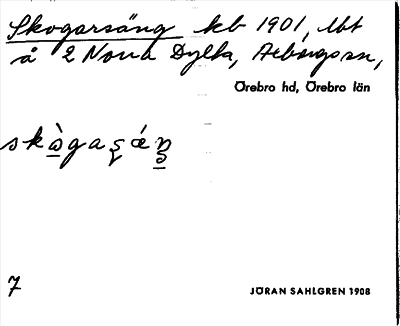 Skogarsäng kb 1901, lbt
å 2 Norra Dylta, Axbergssn,
Örebro hd, Örebro län
skògasǽŋ
7
JÖRAN SAHLGREN 1908